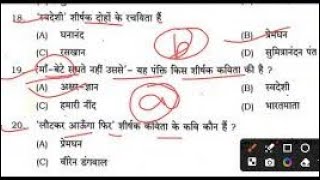 18. 'स्वदेशी' शीर्षक दोहों के रचयिता हैं
(A) घनानंद (B) प्रेमघन
(C) रसखान (D) सुमित्रानंदन पंत
b
19. 'माँ-बेटे सधते नहीं उससे'- यह पंक्ति किस शीर्षक कविता की है ?
(A) अक्षर-ज्ञान (B) स्वदेशी
(C) हमारी नींद (D) भारतमाता
a
20. 'लौटकर आऊँगा फिर' शीर्षक कविता के कवि कौन हैं ?
(A) प्रेमघन
(C) वीरेन डंगवाल